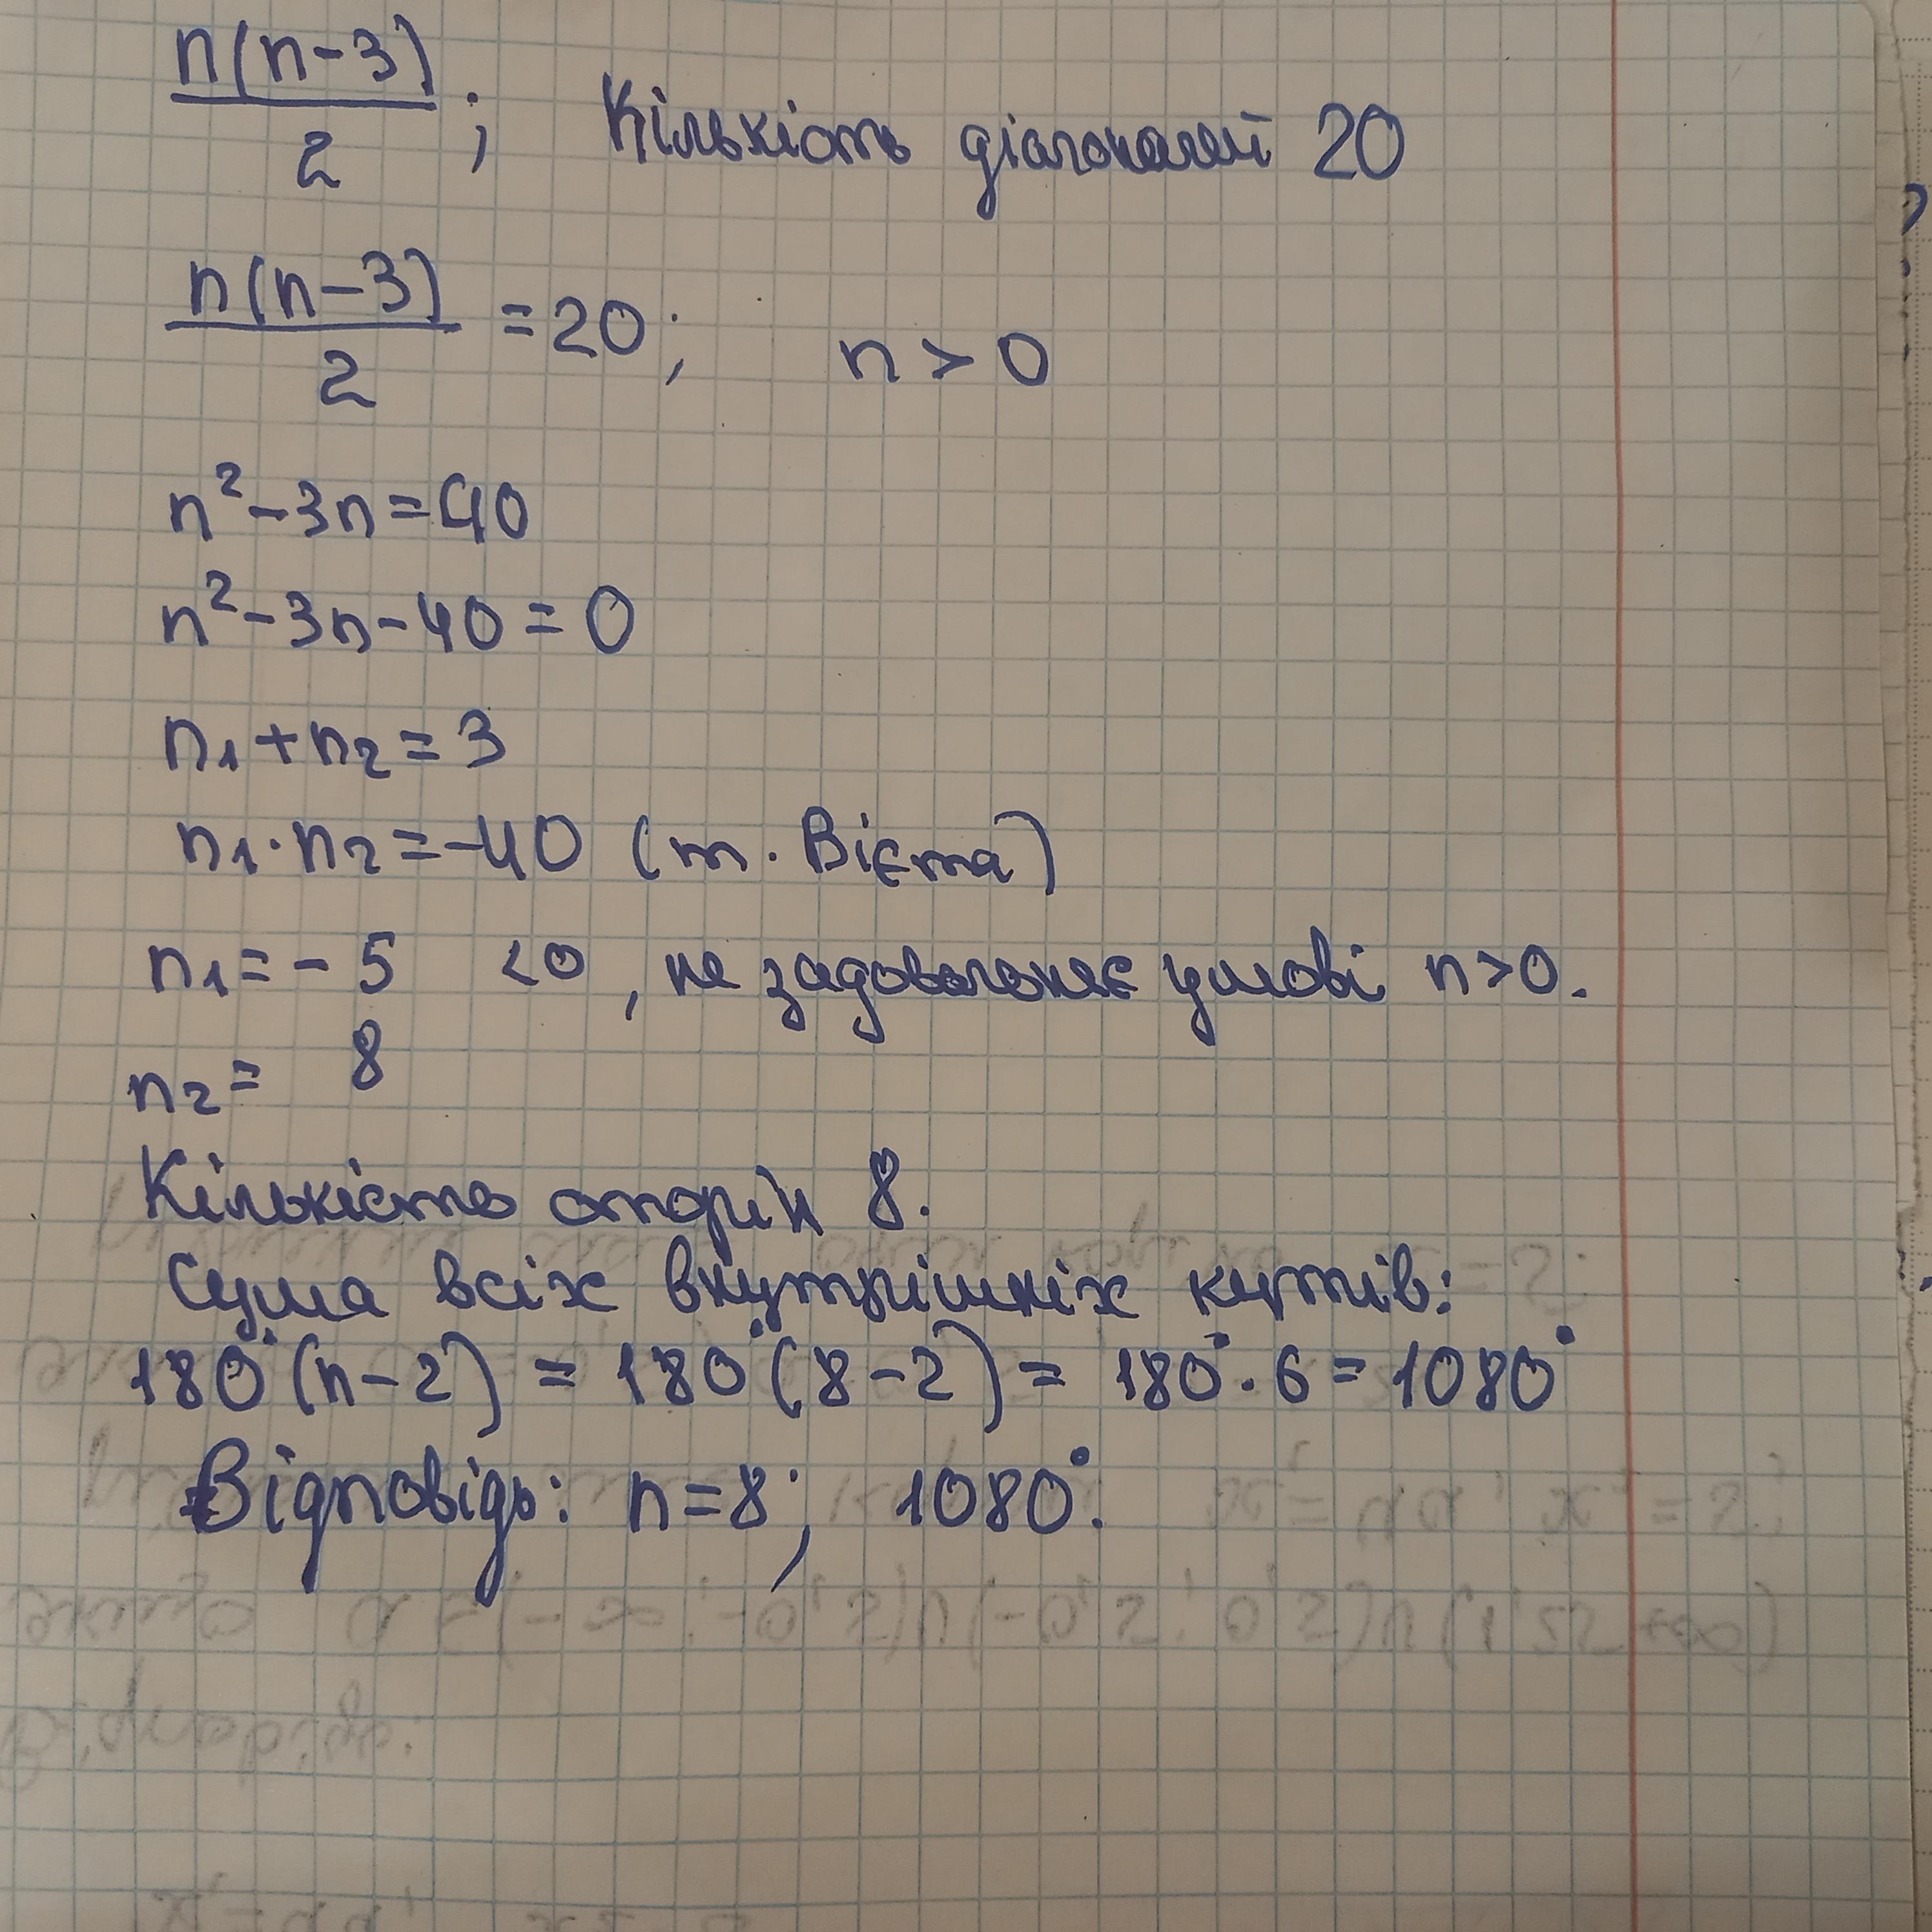 n(n-3)/2 ; Кількість діагоналей 20
n(n-3)/2 = 20; n > 0
n² - 3n = 40
n² - 3n - 40 = 0
n₁ + n₂ = 3
n₁ · n₂ = -40 (т. Вієта)
n₁ = - 5 < 0 , не задовольняє умові n > 0.
n₂ = 8
Кількість сторін 8.
Сума всіх внутрішніх кутів:
180°(n-2) = 180°(8-2) = 180° · 6 = 1080°
Відповідь: n = 8; 1080°.